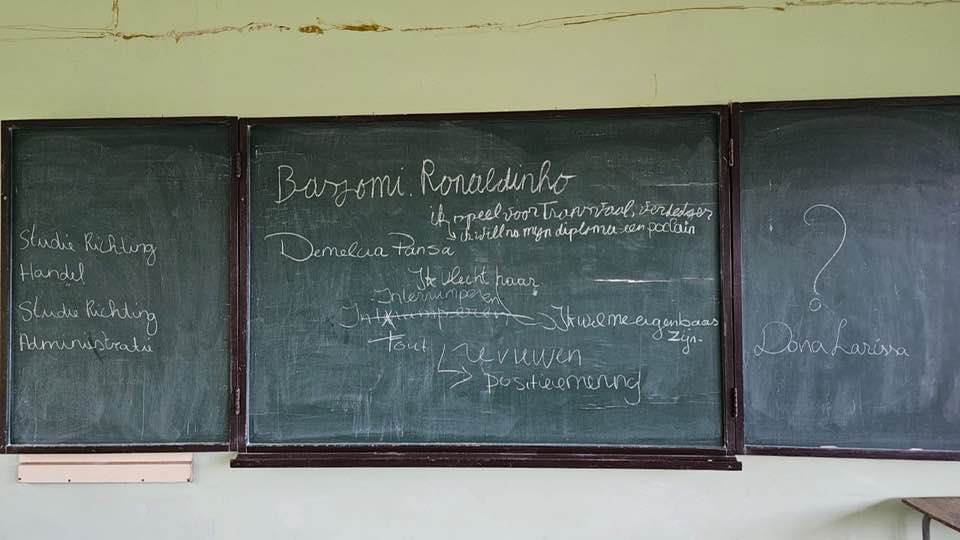 Studie Richting
Handel
Studie Richting
Administratie
Basjomi. Ronaldinho
ik speel voor Transvaal, verdediger
ik will no mijn diploma een poclain
Demelcia Pansa
Ik vlecht haar
Interrumperen
Interumperen
Ik wil me eigen baas
zijn-
Fout
revieuwen
positie mening
?
Dona Larissa